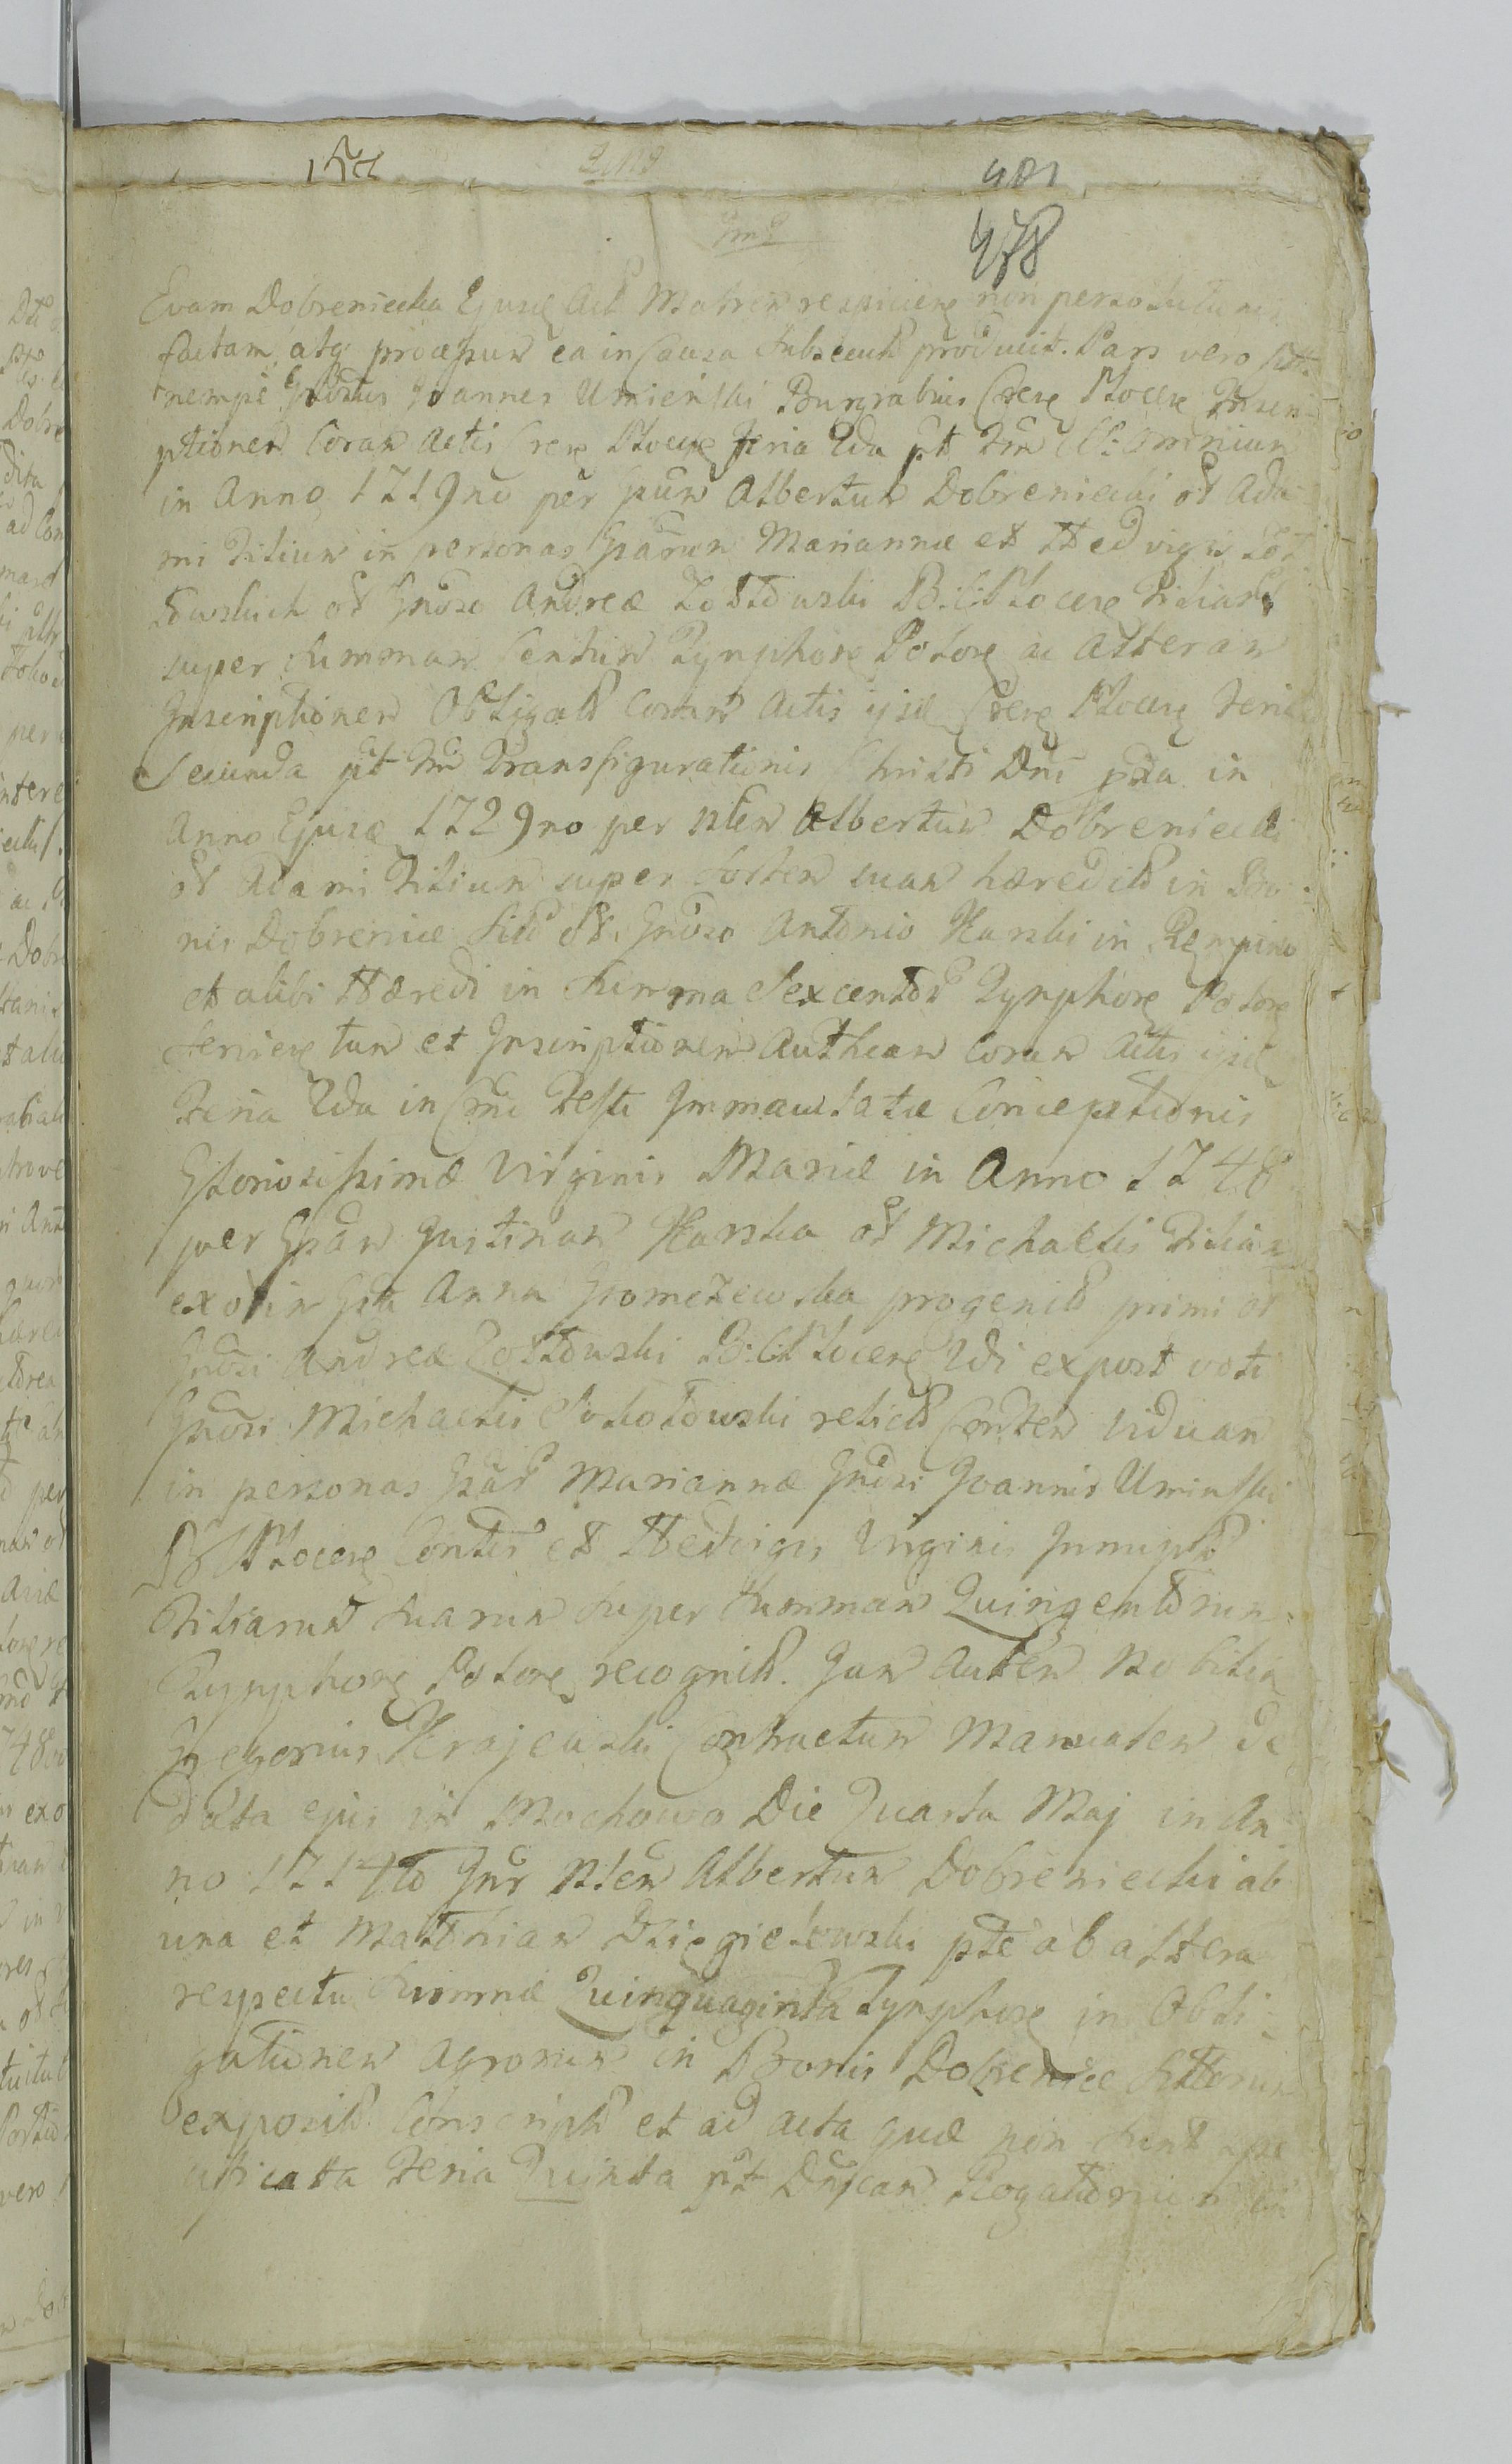 481
478
Evam Dobreniecka Ejusq Act Matrem respicieñ non persolutionis
factam, atq præmissum ea in Causa Subsecut produxit. Pars vero
nempe Gnosus Joannes Umieński Burgrabius Crens Plocens Inscri-
ptionem Coram Actis Crens Plocens Feria 2da pt Fm SS: Omnium
in Anno 1719no per Gsum Albertum Dobreniecki olt Ada-
mi Filium in personas Gsarum Mariannæ et Hedvigis Żoł
towskich olt Gnoso Andrea Żołtowski B: C: Plocens Filiar
super Summam Centum Tynphor Polon ac alteram
Inscriptionem Obligat Coram Actis ijsd Crens Plocens Feria
Secunda pt Fm Transfigurationis Christi Dni pxa in
Anno Ejusq 1729no per Nlem Albertum Dobreniecki
olt Adami Filium super Sortem suam hæredit in Bo-
nis Dobrenice Sit olt Gnoso Antonio Karski in Rempino
et alibi Hæredi in Summa Sexcentor Tynphor Polon
Servien tum et Inscriptionem Authean Coram Actis ijsd
Feria 2da in Crno Festi Immaculatæ Conceptionis
Gloriosissimæ Virginis Mariæ in Anno 1748
per Gsam Justinam Karska olt Michaelis Filiam
ex olim Gsa Anna Gromczewska progenit primi olt
Gnosi Andreæ Żołtowski B: C: Plocens 2di expost voti
Gnosi Michaelis Sokołowski relict Contem Viduam
in personas Gsar Mariannæ Gnosi Joannis Uminski
B C Plocens Contis et Hedvigis Virginis Innupt
Filiarum Suarum Super Summam Quingentorum
Tynphor Polon recognit. Jam autem Nobilis
Gregorius Krajewski Contractum Manualem de
data ejus in Mochowo Die Quarta Maj in An
no 1714to Intr Nlem Albertum Dobreniecki ab
una et Mathiam Dzięgielewski pte ab altera
respectu Summæ Quinquaginta Tynphor in Obli-
gationem Agrorum in Bonis Dobrenice Sitorum
exposit Conscript et ad acta quæ non sunt spe
cificata Feria Quinta pt Dnicam Rogationum